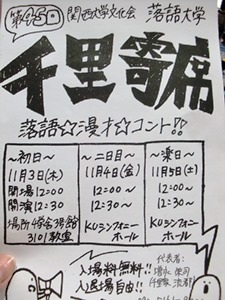 第450 関西大学文化会 落語大学
千里寄席
落語☆漫才☆コント!!
～初日～
11月3日(木)
開場12:00
開演12:30
場所 4学舎3号館
3101教室
～二日目～
11月4日(金)
12:00～
12:30～
KUシンフォニー
ホール
～楽日～
11月5日(土)
12:00～
12:30～
KUシンフォニー
ホール
入場料無料!!
入退場自由!!
代表者: